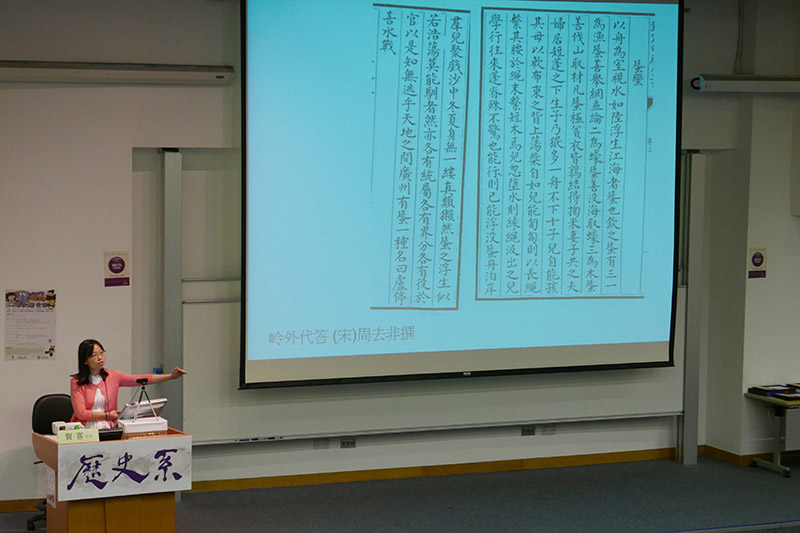 蜑蠻
以舟為室視水如陸浮生江海者蜑也欽之蜑有三一
為漁蜑善舉網垂綸二為蠔蜑善沒海取蠔三為木蜑
善伐山取材凡蜑極貧衣皆鶉結得掬米妻子共之夫
婦居短蓬之下生子乃猥多一舟不下十子兒自能孩
其母以軟布束之背上蕩槳自如兒能匍匐則以長繩
繫其腰於繩末繫短木焉兒忽墮水則緣繩汲出之兒
學行往來蓬脊殊不驚也能行則已能浮沒蜑舟泊岸
羣兒聚戲沙中冬夏身無一縷真類獺然蜑之浮生似
若浩蕩莫能馴者然亦各有統屬各有界分各有役於
官以是知無逃乎天地之間廣州有蜑一種名曰盧停
善水戰
岭外代答 (宋)周去非撰
賀喜
歷史系